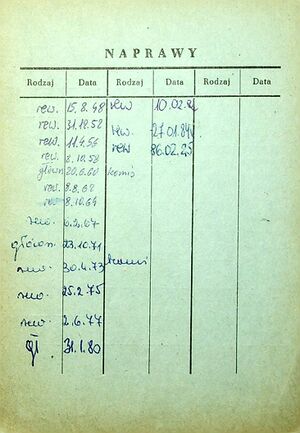 NAPRAWY
Rodzaj Data Rodzaj Data Rodzaj Data
rew. 15.8.48 rew 10.02.82
rew. 31.12.52 rew. 27.01.84
rew. 11.4.56 rew 86.02.25
rew. 8.10.58
główn 20.6.60 komis
rew. 8.8.62
rew 8.10.64
rew. 6.2.67
główn. 23.10.71
rew. 30.4.73 komis
rew. 25.2.75
rew. 2.6.77
gł 31.1.80